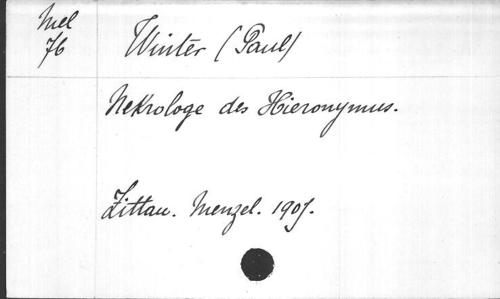 Mel
76
Winter (Paul)
Nekrologe des Hieronymus.
Zittau. Menzel. 1907.